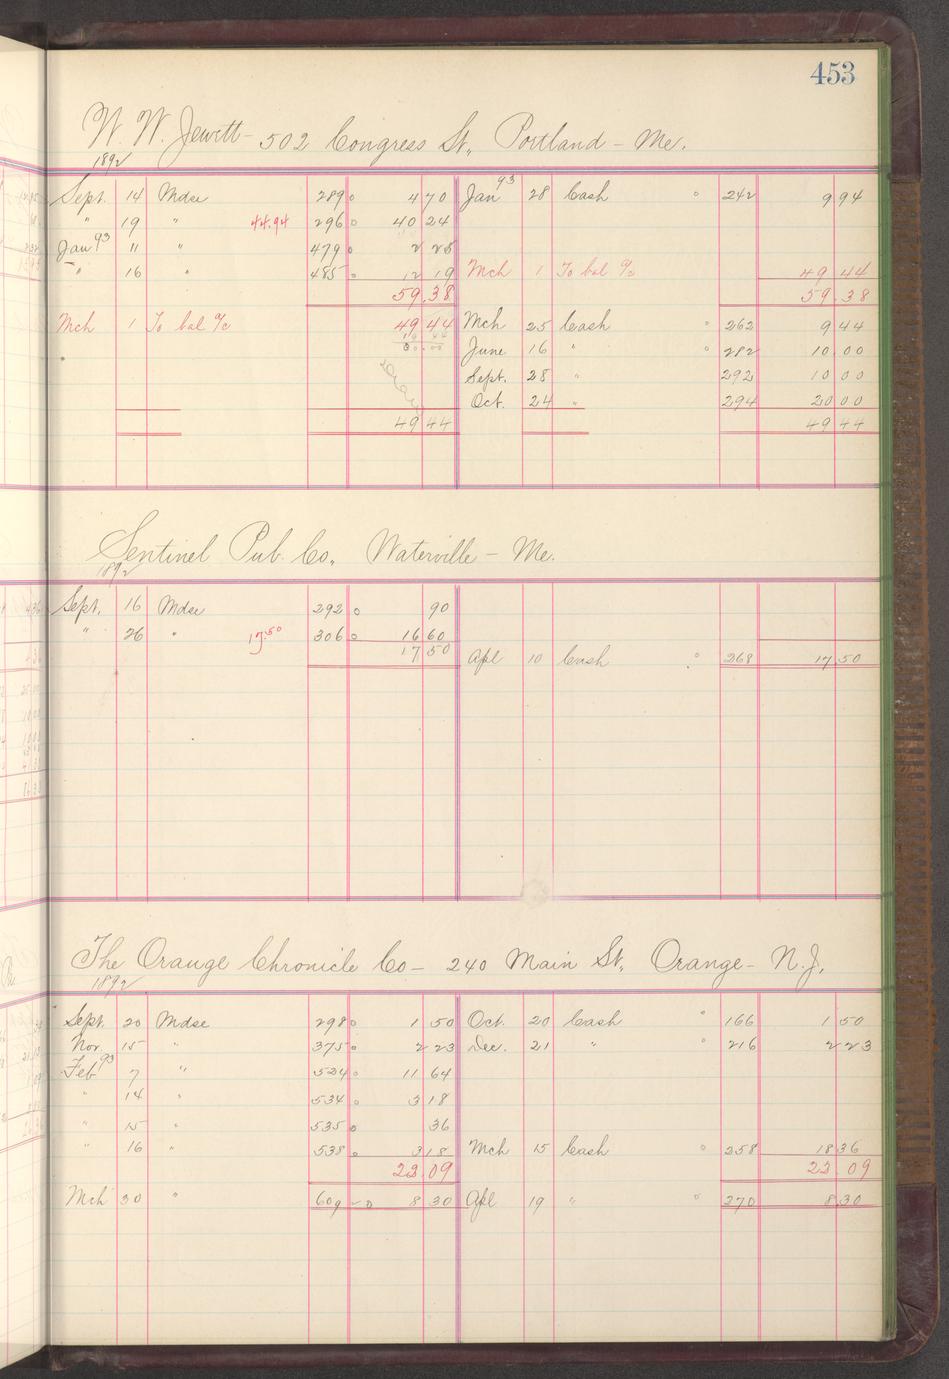 453
W. W. Jewett - 502 Congress St., Portland - Me.
1892
Sept. 14 Mdse 289 o 4 70 Jan 93 28 Cash o 242 9 94
" 19 " 44.94 296 o 40 24
Jan 93 11 " 479 o 2 25
" 16 " 485 o 12 19 Mch 1 To bal a/c 49 44
59.38 59.38
Mch 1 To bal a/c 49 44 Mch 25 Cash o 262 9 44
June 16 " o 282 10 00
Sept. 28 " 292 10 00
Oct. 24 " 294 20 00
49 44 49 44
Sentinel Pub. Co., Waterville - Me.
1892
Sept. 16 Mdse 292 o 90
" 26 " 17.50 306 o 16 60
17 50 Apl 10 Cash o 268 17 50
The Orange Chronicle Co - 240 Main St., Orange - N.J.
1892
Sept. 20 Mdse 298 o 1 50 Oct. 20 Cash " 166 1 50
Nov. 15 " 375 o 2 23 Dec. 21 " o 216 2 23
Feb 93 7 " 524 o 11 64
" 14 " 534 o 3 18
" 15 " 535 o 36
" 16 " 538 o 3 18 Mch 15 Cash o 258 18 36
22.09 22.09
Mch 30 " 609 - o 8 30 Apl 19 " o 270 8 30